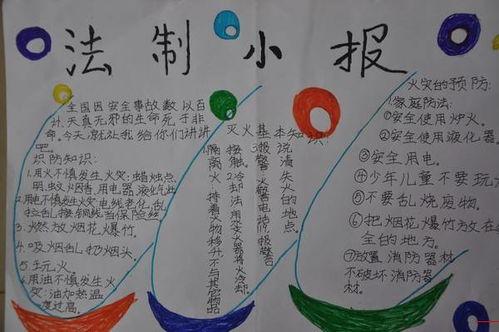 法制小报
全国因安全事故数以百
计.天真无邪的生命死于非
命。今天,就让我给你们讲讲
吧.
识防知识:
1.用火不慎发生火灾:蜡烛点
明,蚊烟香,用电器,液化气灶
2.用电不慎发生火灾电线老化,乱
拉乱接,铜线当保险丝
3.燃放烟花爆竹.
4.吸烟乱扔烟头.
5.玩火
6.用油不慎发生火
灾:油加热温
度过高.
灭火基本知识:
隔离火:将着火物移开不与其它物品
接触
2冷却法:用灭火器将火冷却.
3报警:火警电话119报警
说清失火的地点
火灾的预防:
1.家庭防法:
①安全使用炉火.
②安全使用液化器.
③安全用电.
④少年儿童不要玩火
⑤不要乱烧废物.
⑥把烟花爆竹放在
全的地方.
⑦放置消防器材
不破坏消防器
材.